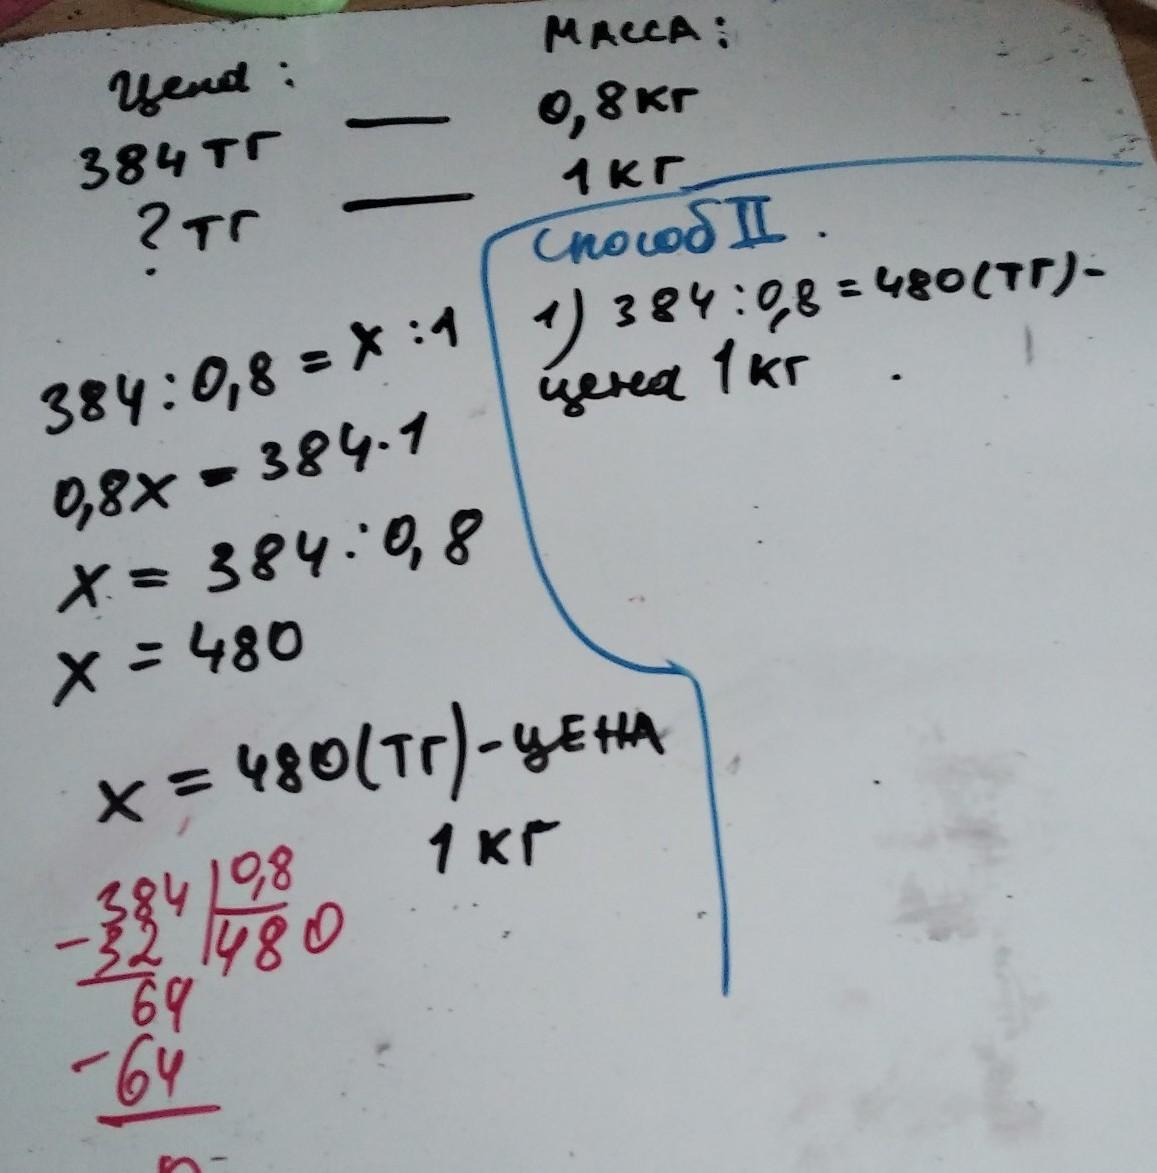 Цена: МАССА:
384 тг — 0,8 кг
? тг — 1 кг
384 : 0,8 = x : 1
0,8x = 384 · 1
x = 384 : 0,8
x = 480
x = 480 (тг) - ЦЕНА
1 кг
384 | 0,8
- 32 | 480
64
- 64
0
Способ II.
1) 384 : 0,8 = 480 (тг) -
цена 1 кг